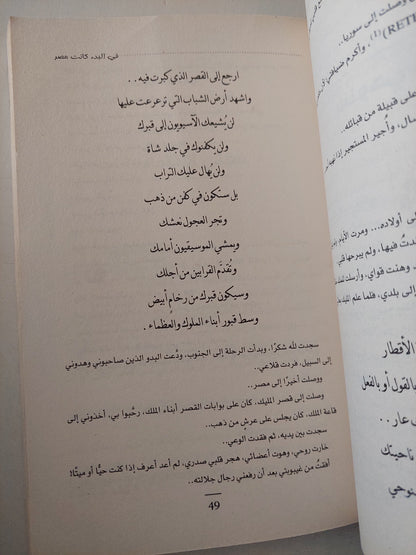 في البدء كانت مصر
ارجع إلى القصر الذي كبرت فيه..
واشهد أرض الشباب التي ترعرعت عليها
لن يُشيعك الآسيويون إلى قبرك
ولن يكفنوك في جلد شاة
ولن يُهال عليك التراب
بل ستكون في كفن من ذهب
وتجر العجول نعشك
ويمشي الموسيقيون أمامك
وتُقدَّم القرابين من أجلك
وسيكون قبرك من رخامٍ أبيض
وسط قبور أبناء الملوك والعظماء.
سجدت لله شكرًا، وبدأت الرحلة إلى الجنوب، ودَّعت البدو الذين صاحبوني وهدوني
إلى السبيل، فردت قلاعي..
ووصلت أخيرًا إلى مصر..
وصلت إلى قصر المليك، كان على بوابات القصر أبناء الملك، رحَّبوا بي، أخذوني إلى
قاعة الملك، كان يجلس على عرشٍ من ذهب..
سجدت بين يديه، ثم فقدت الوعي..
خارت روحي، وهوت أعضائي، هجر قلبي صدري، لم أعد أعرف إذا كنت حيًّا أو ميتًا!
أفقتُ من غيبوبتي بعد أن رفعني رجال جلالته..
49
وصلت إلى سوريا..
(RETE)(1)، وأكرم ضيافتي
على قبيلة من قبائله..
مال، وأُجير المستجير إذا
لى أولاده... ومرت الأيام
فيها، ولم يبرحها
وهنت قواي، وأرسلت
إلى بلدي، فلما علم
الأقطار
بالقول أو بالفعل
عار..
ناحيتك